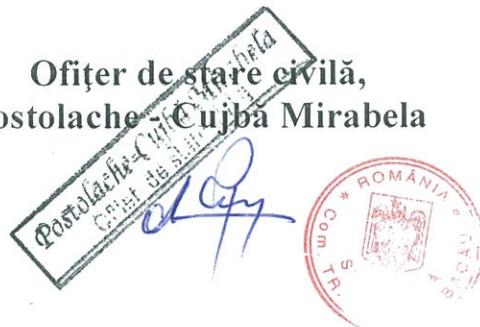 Ofițer de stare civilă,
ostolache - Cujbă Mirabela
Postolache-Cujbă Mirabela
Ofiter de stare civilă
* ROMÂNIA *
Com. TR.
BACĂU